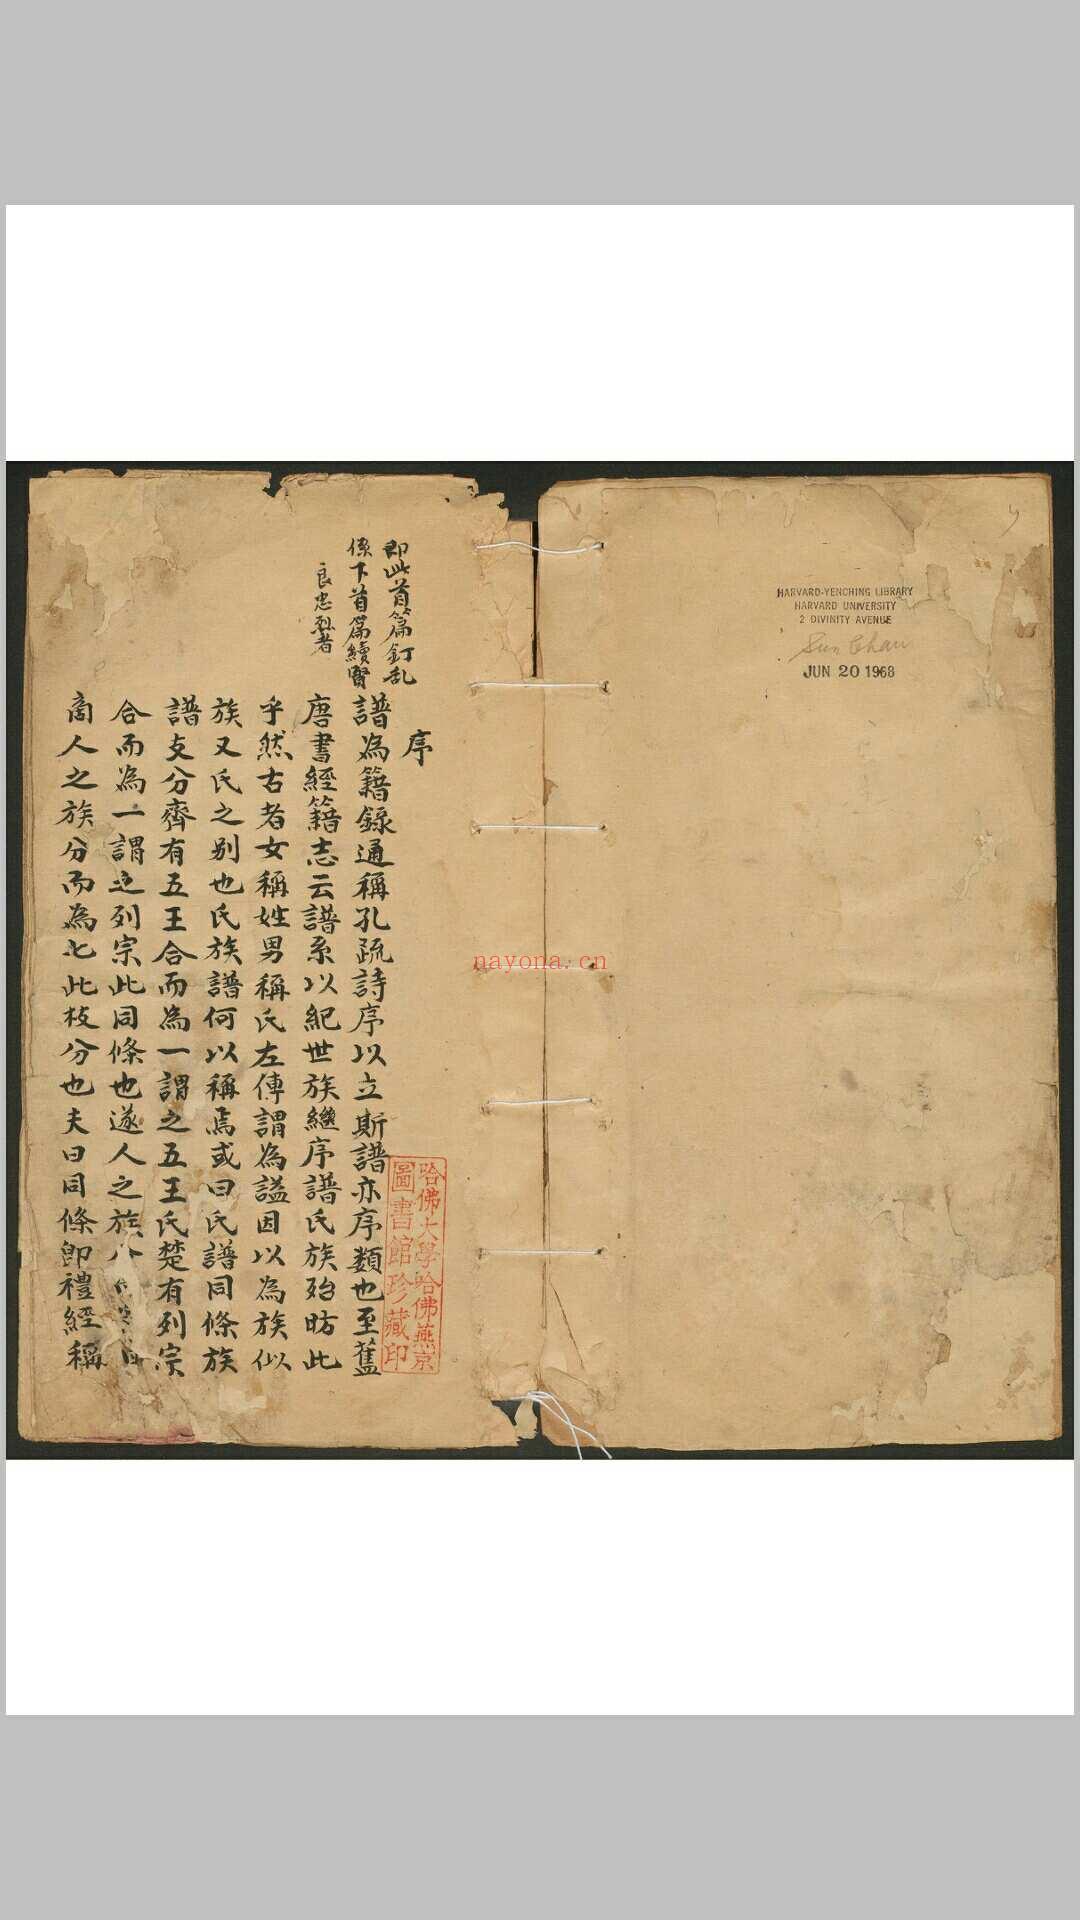 即此首篇釘乱
係下首篇續賢
良忠烈者
序
譜為籍錄通稱孔疏詩序以立斯譜亦序類也至舊
唐書經籍志云譜系以紀世族繼序譜氏族殆昉此
乎然古者女稱姓男稱氏左傳謂為謚因以為族似
族又氏之别也氏族譜何以稱焉或曰氏譜同條族
譜支分齊有五王合而為一謂之五王氏楚有列宗
合而為一謂之列宗此同條也遂人之族
商人之族分而為七此枝分也夫曰同條即禮經稱
哈佛大學哈佛燕京
圖書館珍藏印
HARVARD-YENCHING LIBRARY
HARVARD UNIVERSITY
2 DIVINITY AVENUE
Sun Chau
JUN 20 1968
nayona.cn